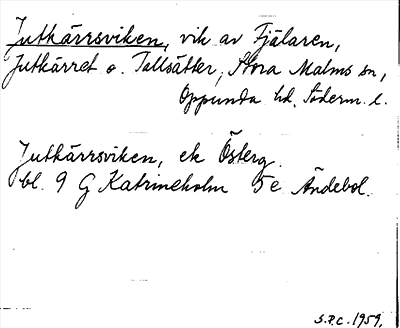 Jutkärrsviken, vik av Fjälaren,
Jutkärret o. Tallsätter, Stora Malms sn,
Oppunda hd, Söderm. l.
Jutkärrsviken, ek Österg.
bl. 9 G Katrineholm 5 e Ändebol.
S.P.C. 1959.